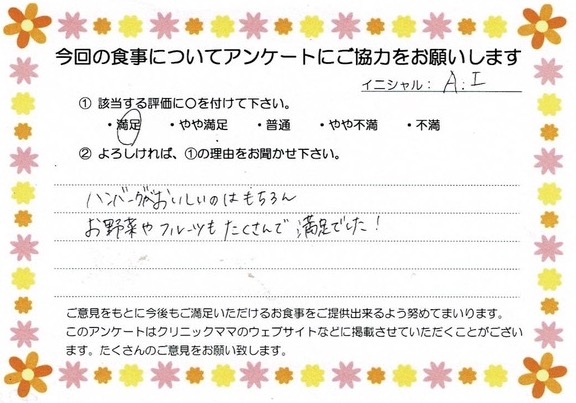 今回の食事についてアンケートにご協力をお願いします
イニシャル： A.I
① 該当する評価に○を付けて下さい。
・満足 ・やや満足 ・普通 ・やや不満 ・不満
② よろしければ、①の理由をお聞かせ下さい。
ハンバーグがおいしいのはもちろん
お野菜やフルーツもたくさんで満足でした！
ご意見をもとに今後もご満足いただけるお食事をご提供出来るよう努めてまいります。
このアンケートはクリニックママのウェブサイトなどに掲載させていただくことがござい
ます。たくさんのご意見をお願い致します。